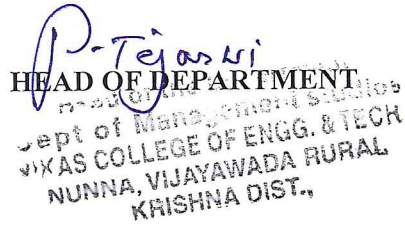 P. Tejaswi
HEAD OF DEPARTMENT
Head of the
Dept of Management Studies
VIKAS COLLEGE OF ENGG. & TECH
NUNNA, VIJAYAWADA RURAL
KRISHNA DIST.,